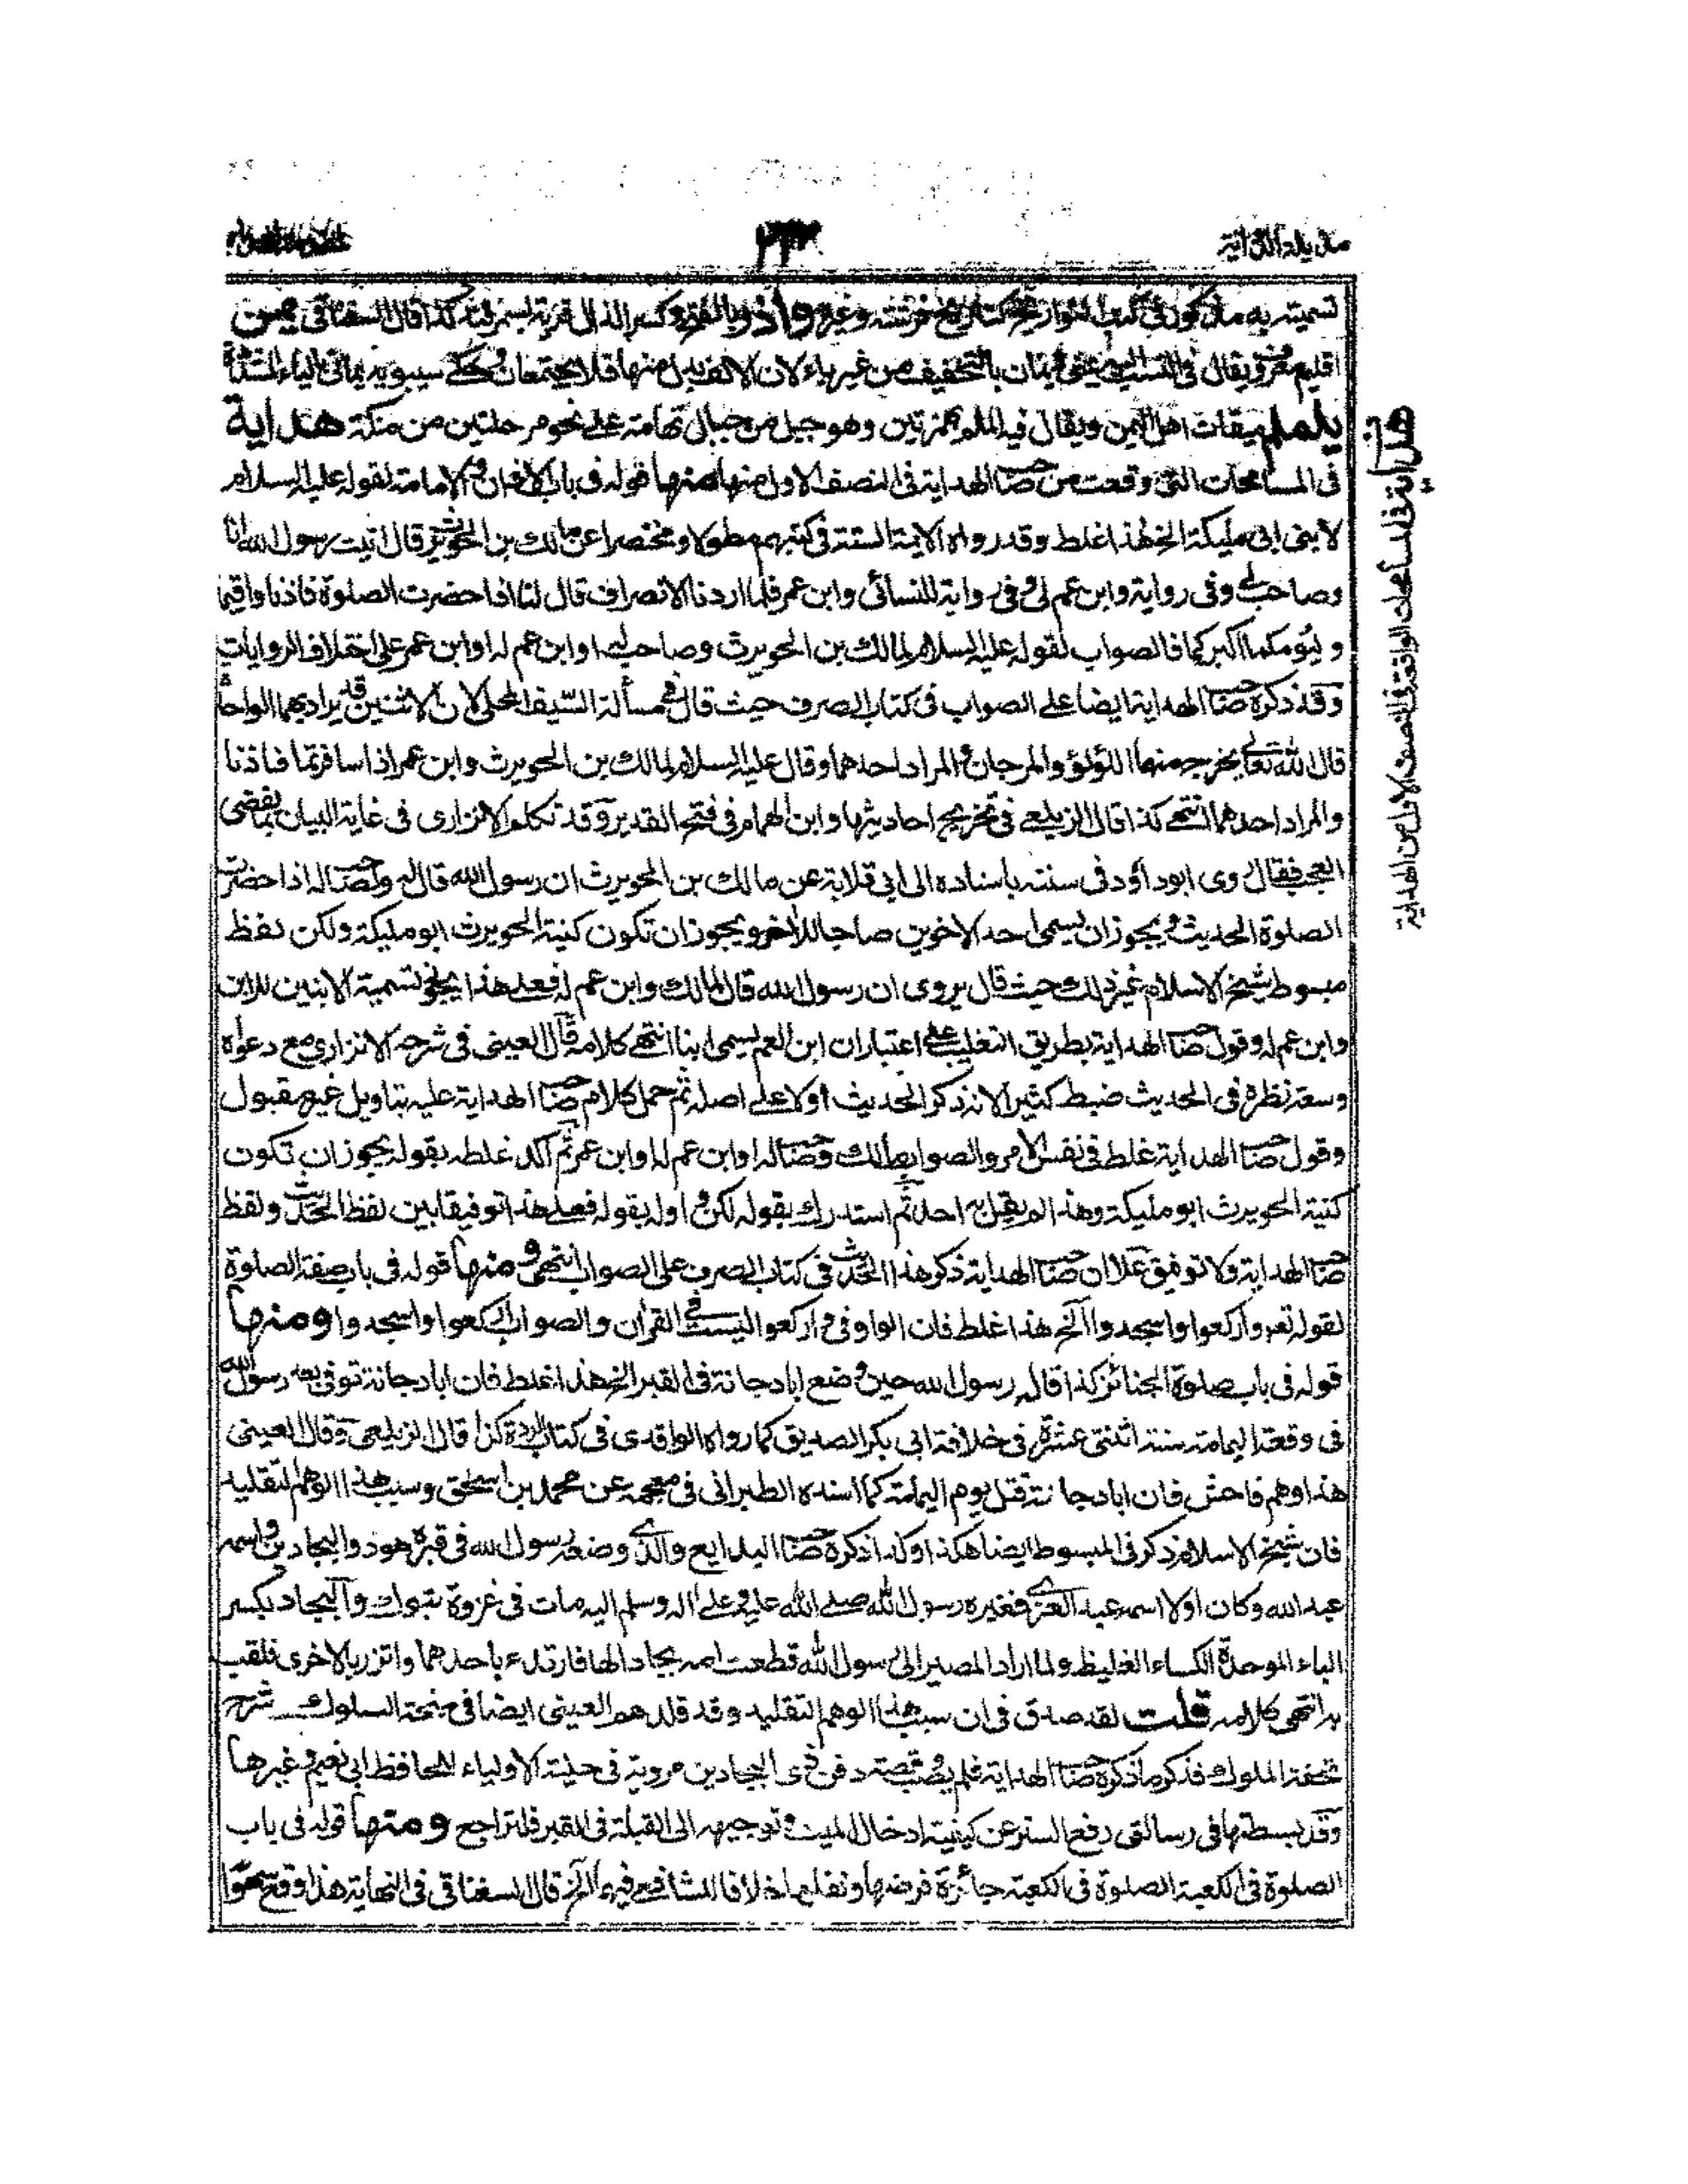 مذيلة الدراية
٢٣
تسميته به مذكور فى كتب التواريخ كتاريخ فرشته وغيره بالفتح وكسر الذال قرية بسمرقند كذا قال السغناقى يمن
اقليم معروف ويقال فى النسب يمنى يمان بالتخفيف من غير ياء لان الالف بدل منها فلا يجتمعان وحكى سيبويه يمانى بالياء المشددة
يلملم ميقات اهل اليمن ويقال فيه الملم بهمزتين وهو جبل من جبال تهامة على نحو مرحلتين من مكة هداية
فى المسامحات التى وقعت من صاحب الهداية فى النصف الاول منها منها قوله فى باب الاذان والامامة لقوله عليه السلام
لابنى ابى مليكة الخ هذا غلط وقد رواه الائمة الستة فى كتبهم مطولا ومختصرا عن مالك بن الحويرث قال اتيت رسول الله انا
وصاحب لى وفى رواية وابن عم لى وفى رواية للنسائى وابن عمر فلما اردنا الانصراف قال لنا اذا حضرت الصلوة فاذنا واقيما
وليؤمكما اكبركما فالصواب لقوله عليه السلام لمالك بن الحويرث وصاحب له او ابن عم له او ابن عمر على اختلاف الروايات
وقد ذكره صاحب الهداية ايضا على الصواب فى كتاب الصرف حيث قال فى مسألة السيف المحلى لان الاثنين قد يراد بهما الواحد
قال الله تعالى يخرج منهما اللؤلؤ والمرجان والمراد احدهما وقال عليه السلام لمالك بن الحويرث وابن عمر اذا سافرتما فاذنا
والمراد احدهما انتهى كذا قال الزيلعى فى تخريج احاديثها وابن الهمام فى فتح القدير وقد تكلم الاتزارى فى غاية البيان بما يقضى
العجب فقال روى ابو داؤد فى سننه باسناده الى ابى قلابة عن مالك بن الحويرث ان رسول الله قال له ولصاحب له اذا حضرت
الصلوة الحديث ويجوز ان يسمى احد الاخوين صاحبا للاخر ويجوز ان تكون كنية الحويرث ابو مليكة ولكن لفظ
مبسوط شيخ الاسلام غير ذلك حيث قال يروى ان رسول الله قال لمالك وابن عم له فعلى هذا يجوز تسمية الابنين للابن
وابن عم له وقول صاحب الهداية بطريق التغليب على اعتبار ان ابن العم يسمى ابنا انتهى كلامه قال العينى فى شرحه الاتزارى مع دعواه
وسعة نظره فى الحديث ضبط كثيرا لانه ذكر الحديث اولا على اصله ثم حمل كلام صاحب الهداية عليه بتاويل غير مقبول
وقول صاحب الهداية غلط فى نفس الامر والصواب مالك وصاحب له او ابن عم له او ابن عمر ثم اكد غلطه بقوله يجوز ان تكون
كنية الحويرث ابو مليكة وهذا لم يقل به احد ثم استدرك بقوله لكن واوله بقوله فعلى هذا توفيقا بين لفظ الحديث ولفظ
صاحب الهداية ولا توفيق علا ان صاحب الهداية ذكر هذا الحديث فى كتاب الصرف على الصواب انتهى ومنها قوله فى باب صفة الصلوة
لقوله تعالى واركعوا واسجدوا الخ هذا غلط فان الواو فى واركعوا ليست فى القرأن والصواب اركعوا واسجدوا ومنها
قوله فى باب صلوة الجنائز كذا قاله رسول الله حين وضع ابا دجانة فى القبر الخ هذا غلط فان ابا دجانة توفى بعد رسول الله
فى وقعة اليمامة سنة اثنتى عشرة فى خلافة ابى بكر الصديق كما رواه الواقدى فى كتاب الردة كذا قال الزيلعى وقال العينى
هذا وهم فاحش فان ابا دجانة قتل يوم اليمامة كما اسنده الطبرانى فى معجمه عن محمد بن اسحق وسبب هذا الوهم التقليد
فان شيخ الاسلام ذكر فى المبسوط ايضا هكذا وكذا ذكره صاحب البدايع والذى وضعه رسول الله فى قبره هو ذو البجادين واسمه
عبد الله وكان اولا اسمه عبد العزى فغيره رسول الله صلى الله عليه وعلى اله وسلم اليه مات فى غزوة تبوك والبجاد بكسر
الباء الموحدة الكساء الغليظ ولما اراد المصير الى رسول الله قطعت امه بجادا لها فارتدء باحدهما واتزر بالاخرى فلقب
به انتهى كلامه قلت لقد صدق فى ان سبب هذا الوهم التقليد وقد قلدهم العينى ايضا فى منحة السلوك شرح
تحفة الملوك فذكر ما ذكره صاحب الهداية فلم يصب وقصة دفن ذى البجادين مروية فى حلية الاولياء للحافظ ابى نعيم وغيرها
وقد بسطتها فى رسالتى رفع الستر عن كيفية ادخال الميت وتوجيهه الى القبلة فى القبر فلتراجع ومنها قوله فى باب
الصلوة فى الكعبة الصلوة فى الكعبة جائزة فرضها ونفلها خلافا للشافعى فيهما الخ قال السغناقى فى النهاية هذا وقع سهوا
هداية فى المسامحات الواقعة فى النصف الاول من الهداية